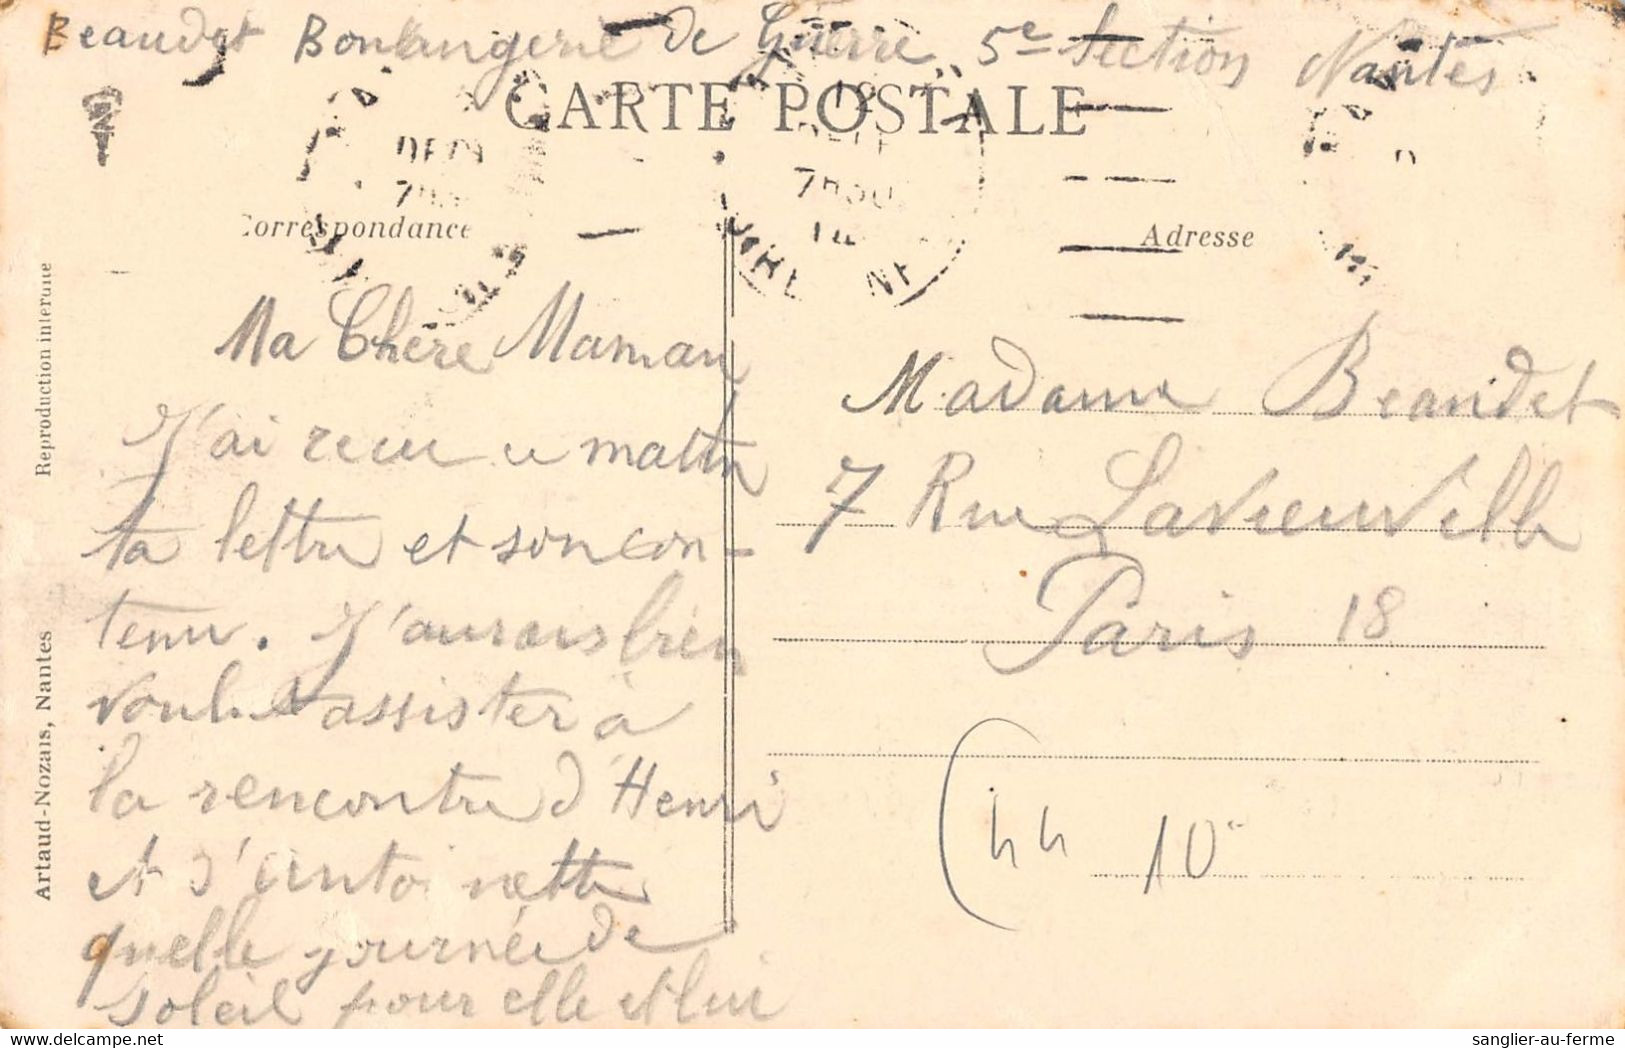 Beaudet Boulangerie de Guerre 5e Section Nantes
CARTE POSTALE
Correspondance
Adresse
Reproduction interdite
Artaud-Nozais, Nantes
Ma Chère Maman
J'ai recu ce mattin
ta lettre et son con-
tenu. J'aurais bien
voulu assister à
la rencontre d'Henri
et d'Antoinette
quelle journée de
soleil pour elle et lui
Madame Beaudet
7 Rue Lavieuville
Paris 18
44
10
sanglier-au-ferme